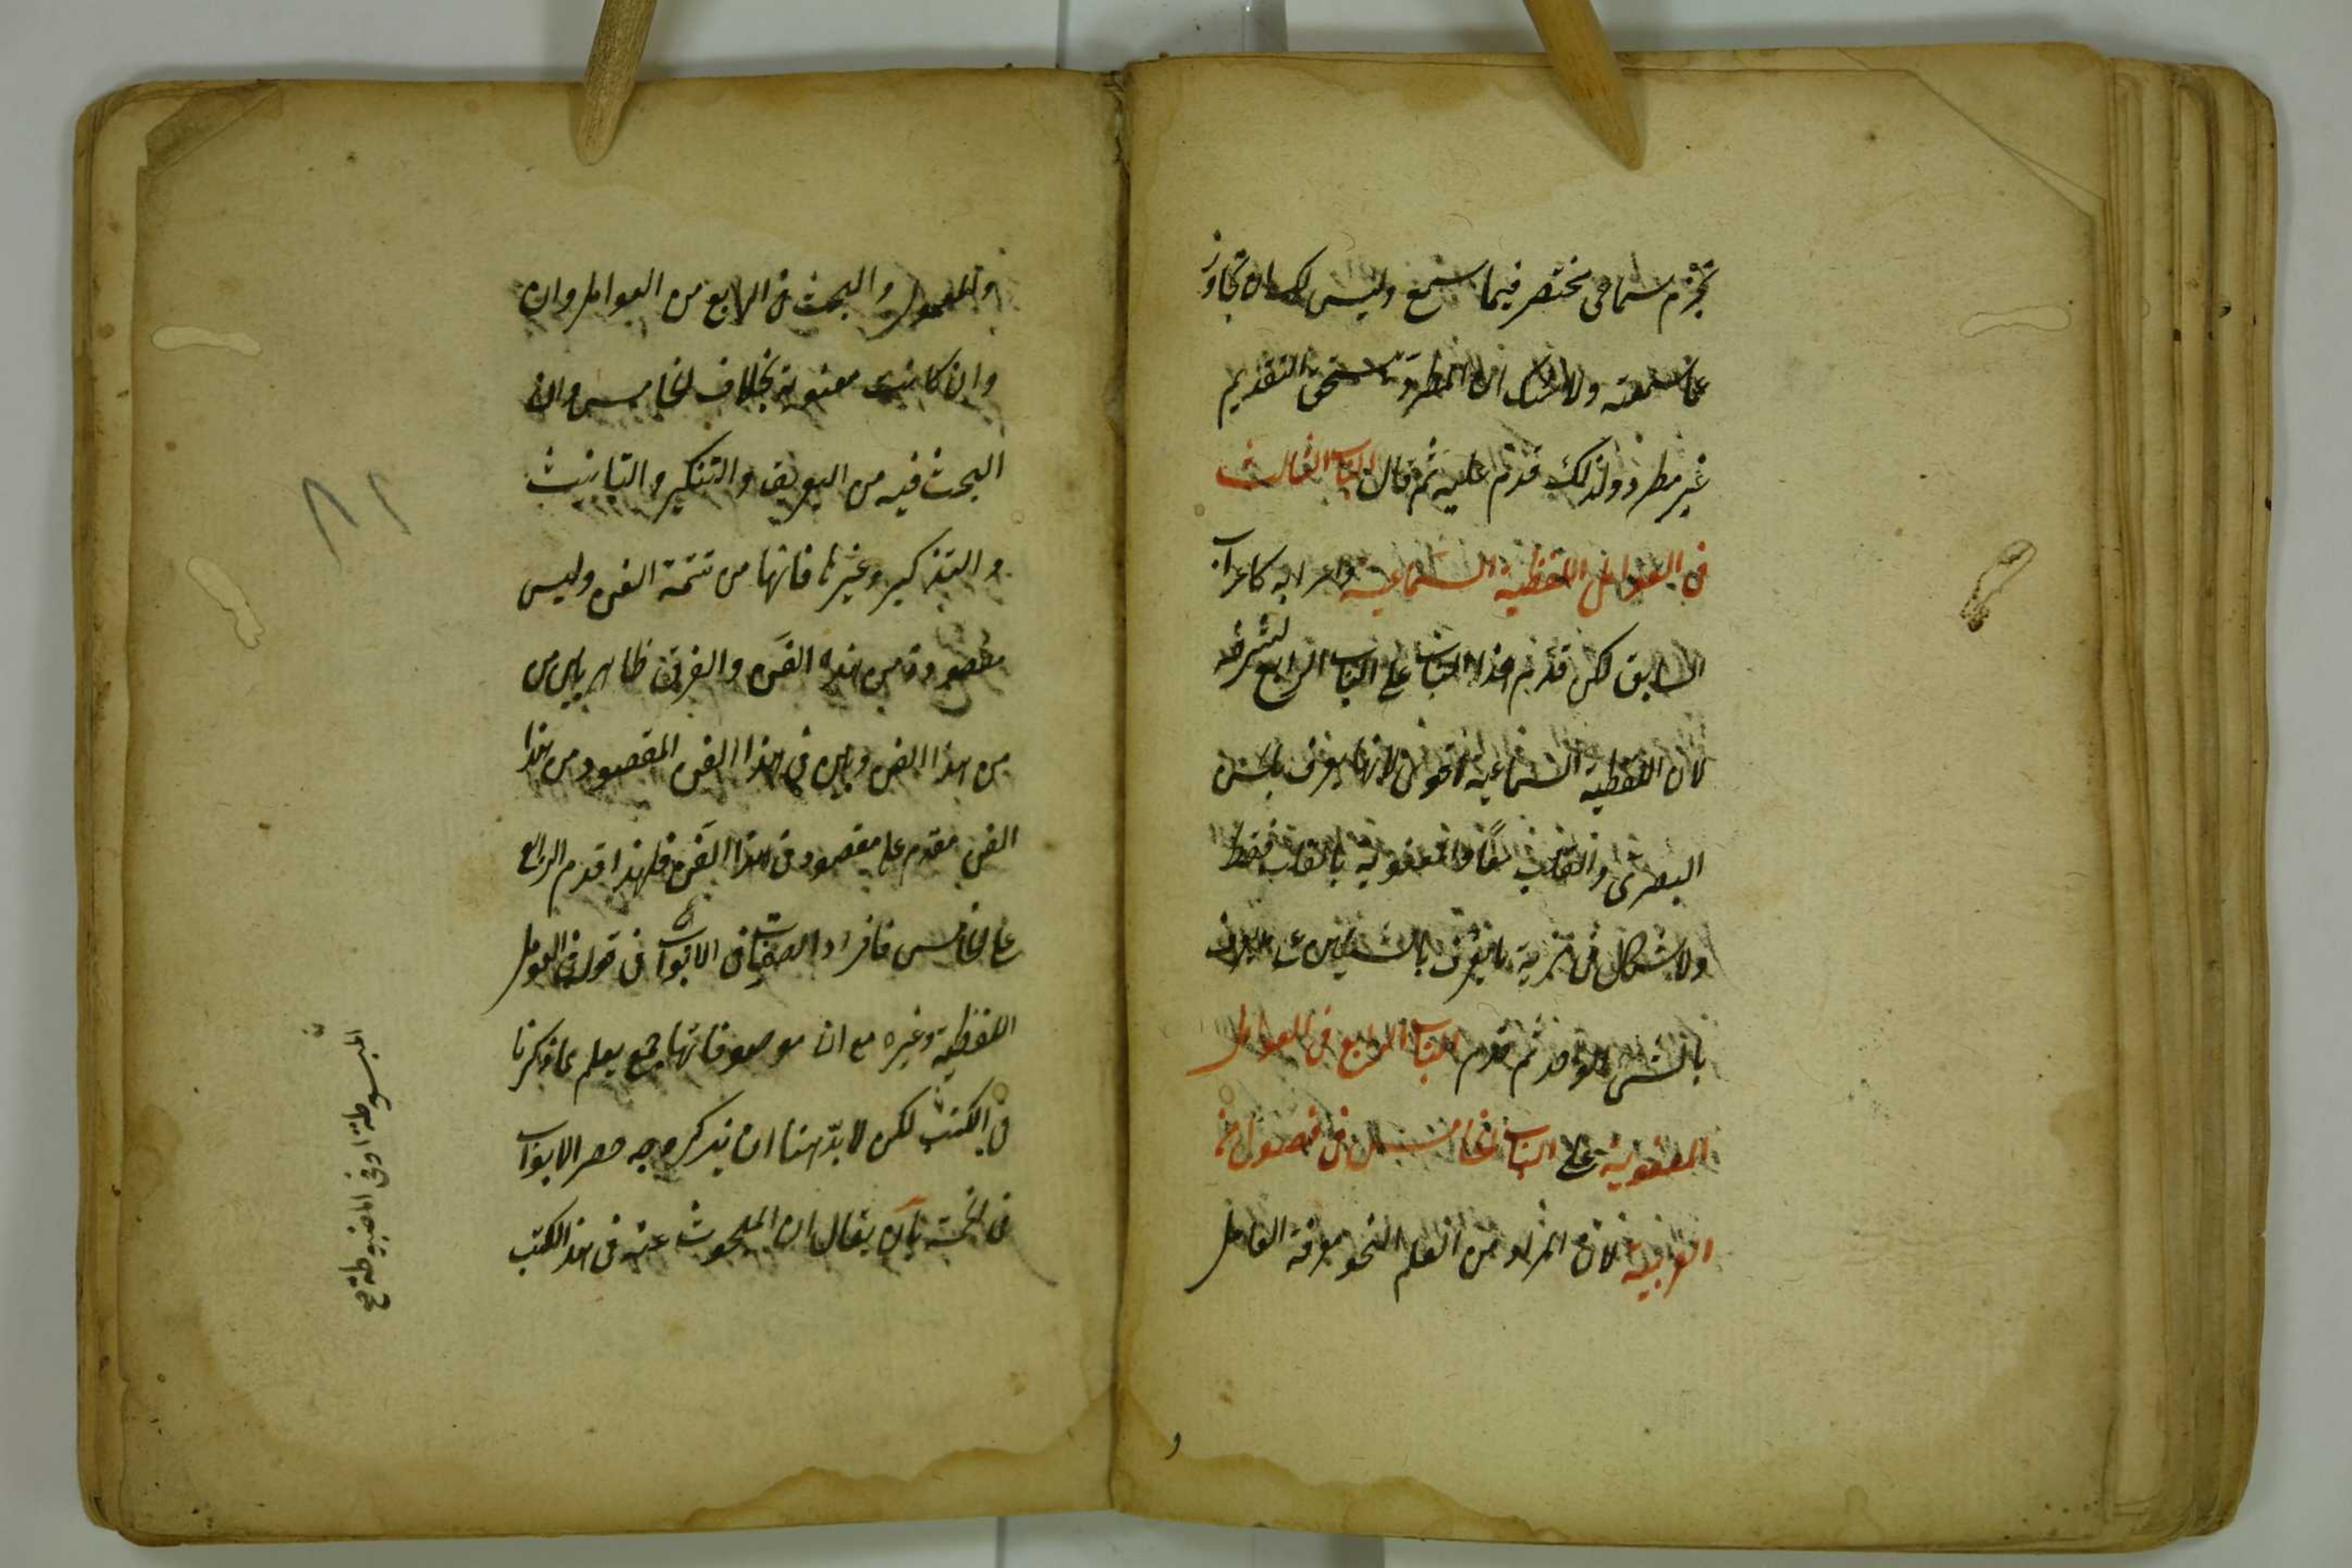 تجزم سماعى مختصر فيما سمع وليس لك ان تجاوز
عما سمعته ولا شك ان المطرد يستحق التقديم
غير مطرد ولذلك قدم عليه ثم قال الباب الثالث
فى العوامل اللفظية السماعية واعرابه كاعراب
السابق لكن قدم هذا الباب على الباب الرابع لشرفه
لان اللفظية السماعية اقوى لانها يعرف بالحس
البصرى والقلب معًا والمعنوية بالقلب فقط
ولا شكال فى مزية ما يعرف بالشيئين على
بالشى الواحد ثم قدم الباب الرابع فى العوامل
المعنوية على الباب الخامس فى فصول من
العربية لان المراد من العلم النحو معرفة العامل
والمعمول والبحث فى الرابع من العوامل وان
وان كانت معنوية بخلاف الخامس وان
البحث فيه من التعريف والتنكير والتانيث
والتذكير وغيرها فانها من تتمة الفن وليس
مقصودة من هذه الفن والفرق ظاهر بين من
من هذا الفن وبين فى هذا الفن المقصود من هذا
الفن مقدم على مقصود فى هذا الفن فلهذا قدم الرابع
على الخامس فافراد الصفات فى الابواب فى قوله فى العوامل
اللفظية وغيره مع ان موصوفاتها جمع يعلم مما ذكرنا
فى الكتب لكن لا بد هنا ان يذكر وجه حصر الابواب
فى الخمسة بان يقال ان المبحوث عنه فى هذا الكتب